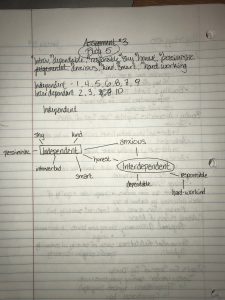 Assignment #3
Blog 5
honest, pessimistic
judgemental, anxious, kind, smart, hard working
Independent - 1, 4, 5, 6, 8, 7, 9
Interdependent 2, 3, 8 10
Independent
shy
kind
anxious
pessimistic
Independent
honest
Interdependent
introverted
smart
responsible
dependable
hard-workind